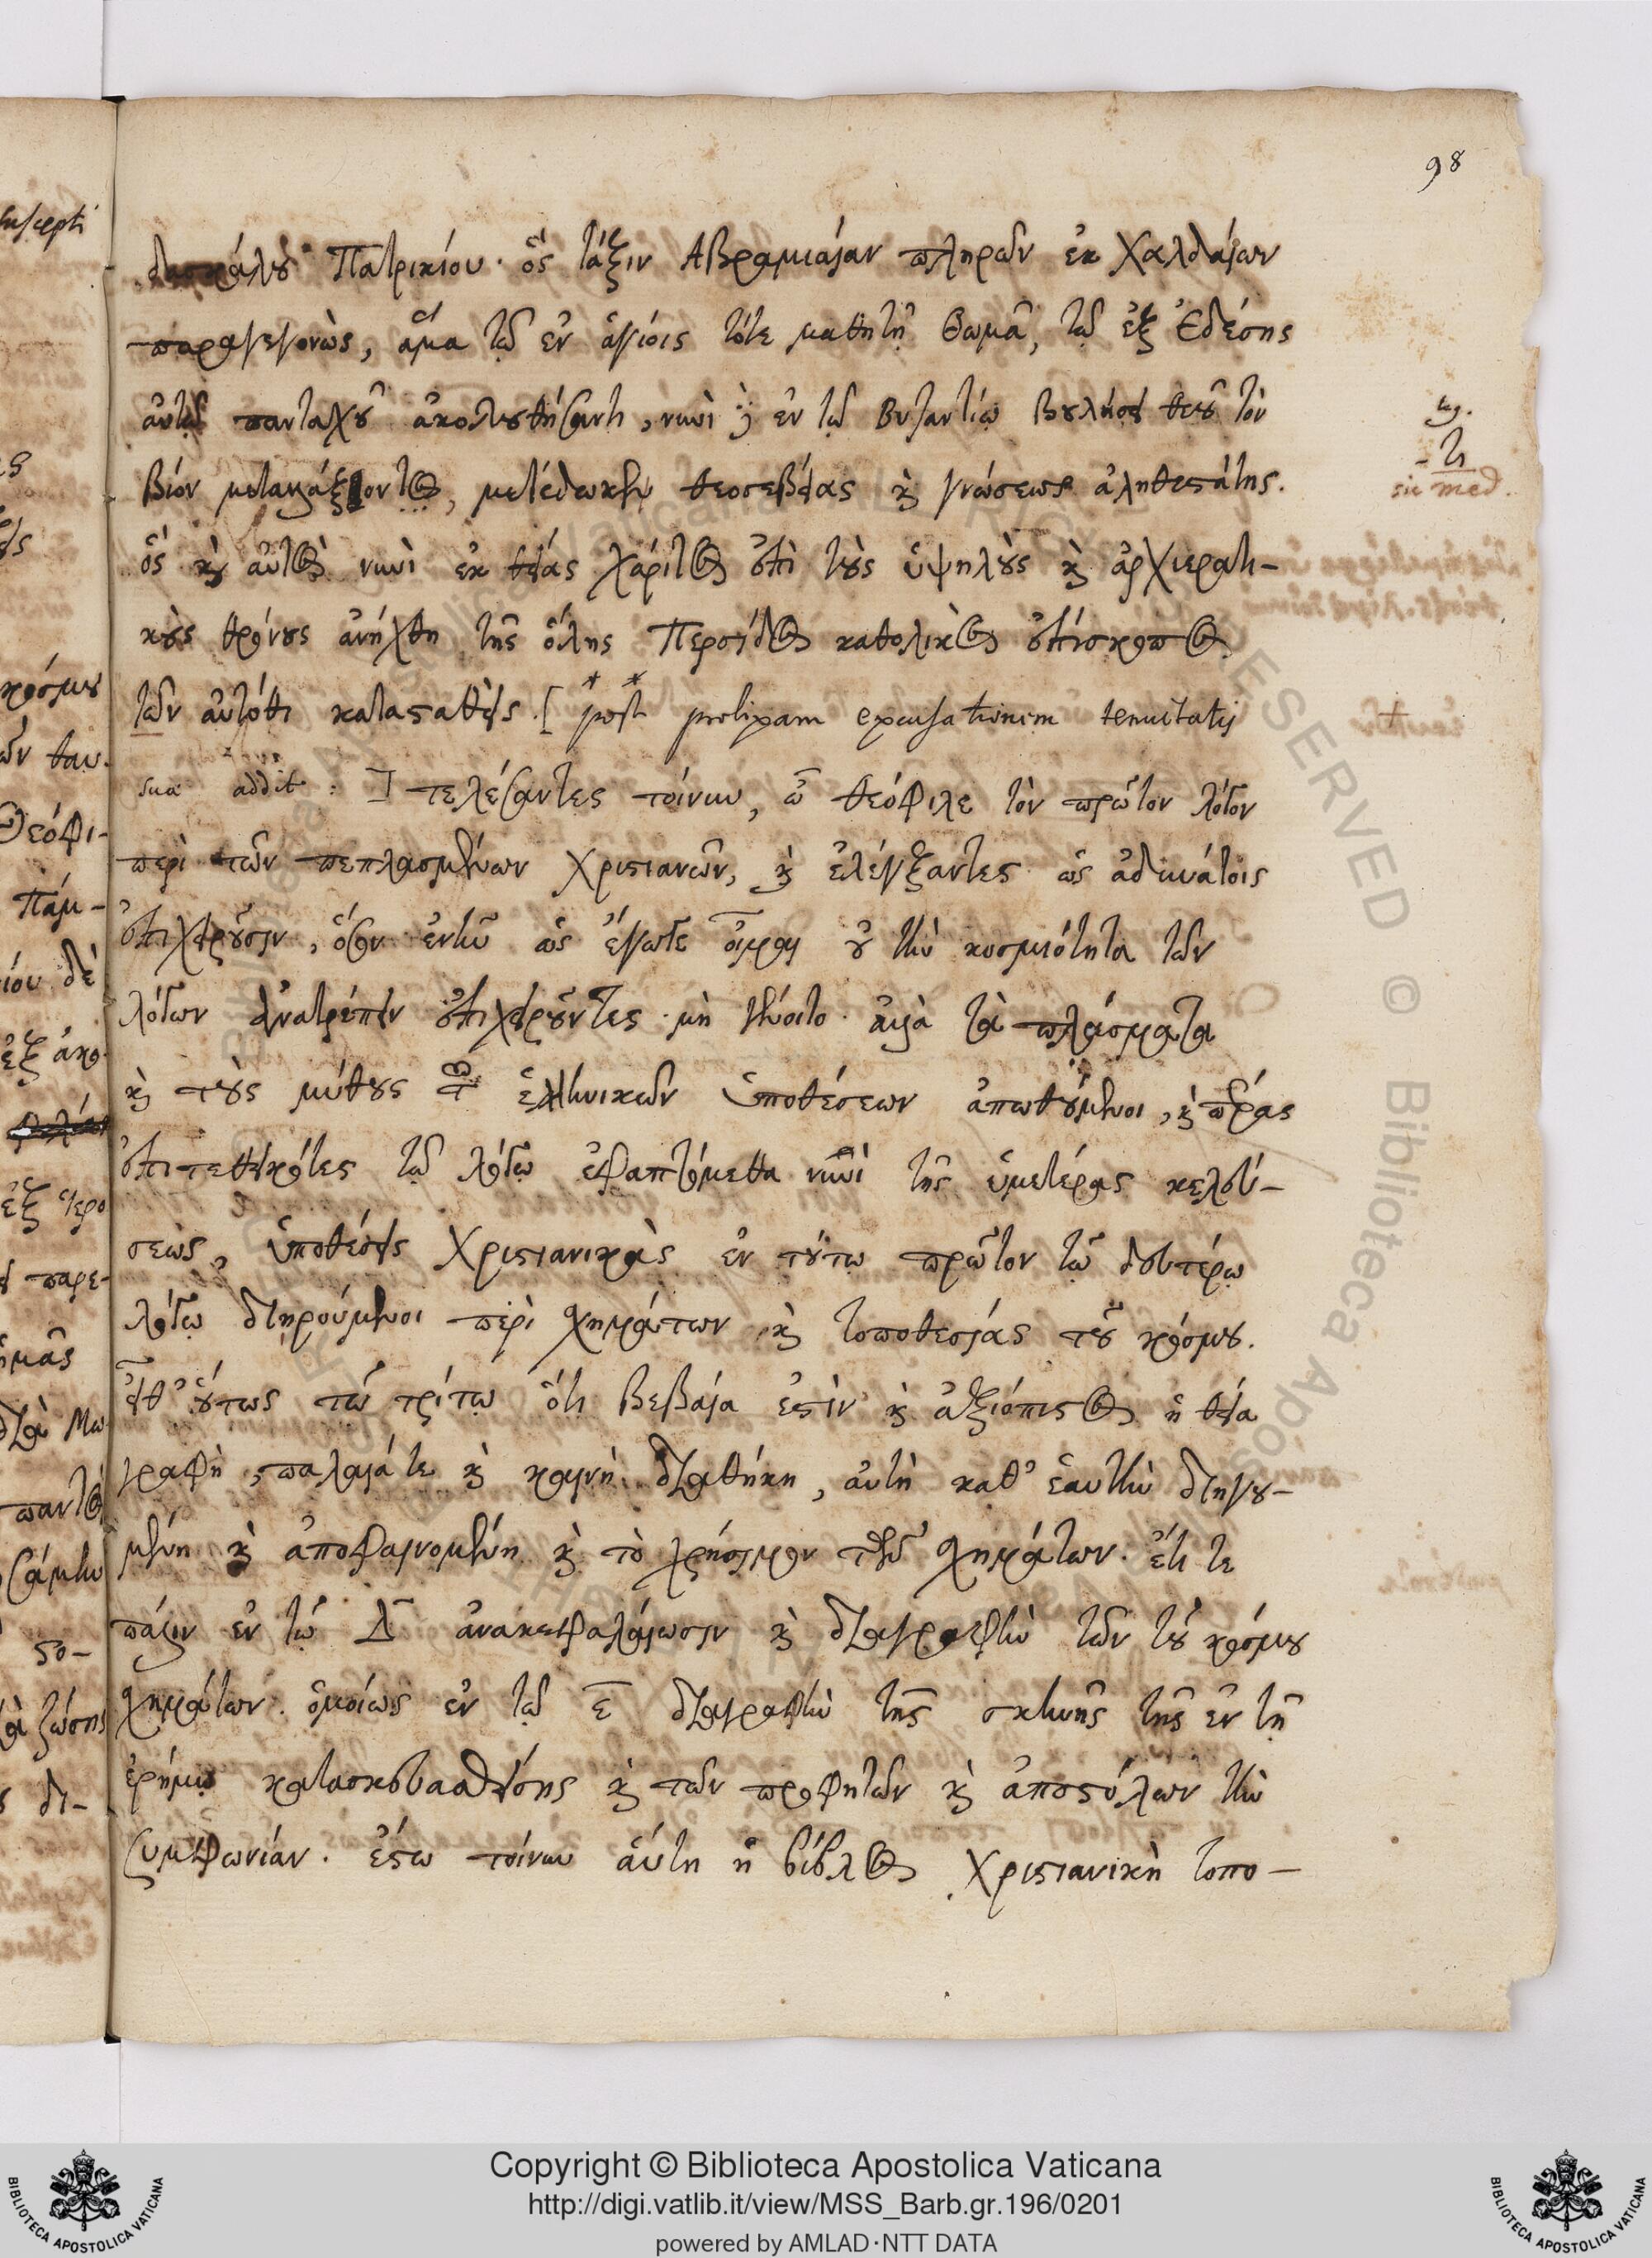 98
δασκάλου Πατρικίου· ὃς τάξιν Ἀβραμιαίαν πληρῶν ἐκ Χαλδαίων
παραγεγονὼς, ἅμα τῷ ἐν ἁγίοις τότε μαθητῇ Θωμᾷ, τῷ ἐξ Ἐδέσης
αὐτῷ πανταχοῦ ἀκολουθήσαντι, νυνὶ δὲ ἐν τῷ Βυζαντίῳ βουλήσει θεοῦ τὸν
βίον μεταλλάξαντος, μετέδωκεν θεοσεβείας καὶ γνώσεως ἀληθεστάτης.
sic med.
ὃς καὶ αὐτὸς νυνὶ ἐκ θείας χάριτος ἐπὶ τοὺς ὑψηλοὺς καὶ ἀρχιερατι-
κοὺς θρόνους ἀνήχθη τῆς ὅλης Περσίδος καθολικὸς ἐπίσκοπος
τῶν αὐτόθι κατασταθείς. [ post prolixam excusationem tenuitatis
suæ addit: ] τελέσαντες τοίνυν, ὦ θεόφιλε τὸν πρῶτον λόγον
περὶ τῶν πεπλασμένων Χριστιανῶν, καὶ ἐλέγξαντες ὡς ἀδυνάτοις
ἐπιχειροῦσιν, ὅσον ἐνῆν ὡς ἔγωγε οἶμαι οὐ τὴν κοσμιότητα τῶν
λόγων ἀνατρέπειν ἐπιχειροῦντες· μὴ γένοιτο· ἀλλὰ τὰ πλάσματα
καὶ τοὺς μύθους τῶν ἑλληνικῶν ὑποθέσεων ἀπωθούμενοι, καὶ πέρας
ἐπιτεθεικότες τῷ λόγῳ ἐφαπτόμεθα νυνὶ τῆς ὑμετέρας κελεύ-
σεως, ὑποθέσεις Χριστιανικὰς ἐν τούτῳ πρῶτον τῷ δευτέρῳ
λόγῳ διηρούμενοι περὶ σχημάτων καὶ τοποθεσίας τοῦ κόσμου.
εἶθ' οὕτως τῷ τρίτῳ ὅτι βεβαία ἐστὶν καὶ ἀξιόπιστος ἡ θεία
γραφὴ, παλαιά τε καὶ καινὴ διαθήκη, αὐτὴ καθ' ἑαυτὴν διηγου-
μένη καὶ ἀποφαινομένη καὶ τὸ χρήσιμον τῶν σχημάτων. ἔτι τε
πάλιν ἐν τῷ Δ ἀνακεφαλαίωσιν καὶ διαγραφὴν τῶν τοῦ κόσμου
σχημάτων. ὁμοίως ἐν τῷ ε διαγραφὴν τῆς σκηνῆς τῆς ἐν τῇ
ἐρήμῳ κατασκευασθείσης καὶ τῶν προφητῶν καὶ ἀποστόλων τὴν
συμφωνίαν. ἔστω τοίνυν αὕτη ἡ βίβλος Χριστιανικὴ τοπο-
Copyright © Biblioteca Apostolica Vaticana
http://digi.vatlib.it/view/MSS_Barb.gr.196/0201
powered by AMLAD·NTT DATA
BIBLIOTECA APOSTOLICA VATICANA
BIBLIOTECA APOSTOLICA VATICANA